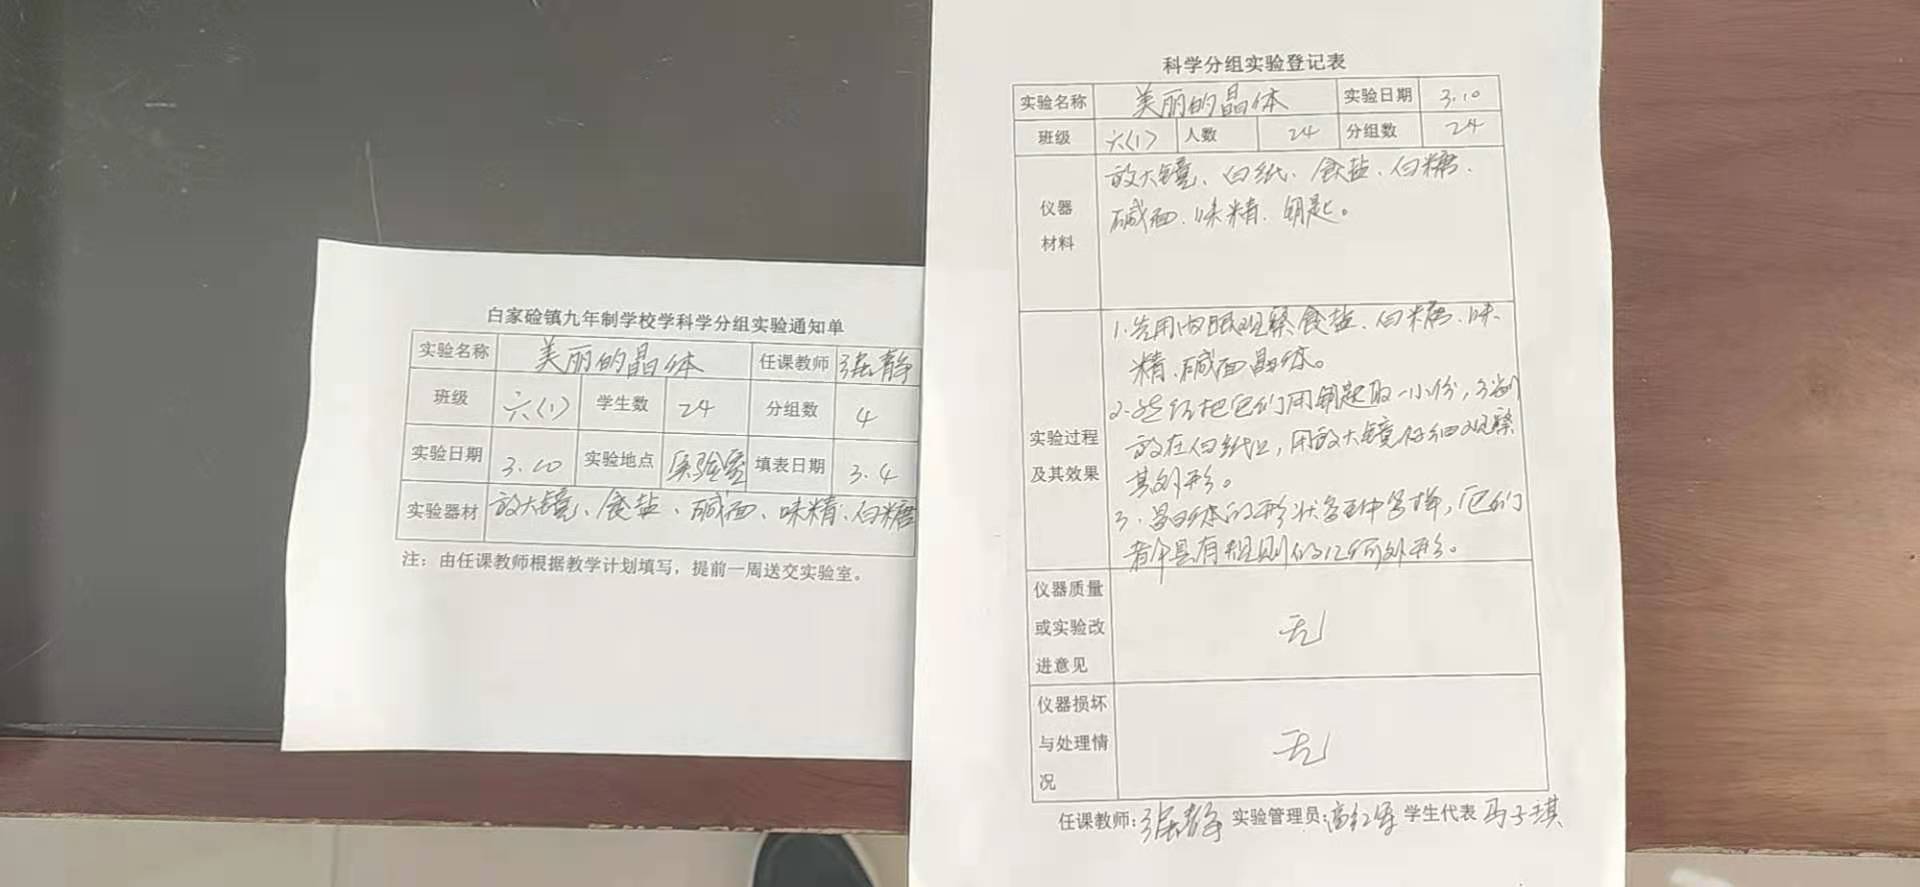 白家硷镇九年制学校学科学分组实验通知单
实验名称 美丽的晶体 任课教师 张静
班级 六(1) 学生数 24 分组数 4
实验日期 3.10 实验地点 实验室 填表日期 3.4
实验器材 放大镜、食盐、碱面、味精、白糖
注：由任课教师根据教学计划填写，提前一周送交实验室。
科学分组实验登记表
实验名称 美丽的晶体 实验日期 3.10
班级 六(1) 人数 24 分组数 24
仪器
材料
放大镜、白纸、食盐、白糖、
碱面、味精、钥匙。
实验过程
及其效果
1.先用肉眼观察食盐、白糖、味
精、碱面晶体。
2.然后把它们用钥匙取一小份，分别
放在白纸上，用放大镜仔细观察
其外形。
3.晶体的形状多种多样，它们
都具有规则的几何外形。
仪器质量
或实验改
进意见
无
仪器损坏
与处理情
况
无
任课教师：张静 实验管理员：高红军 学生代表 马子琪